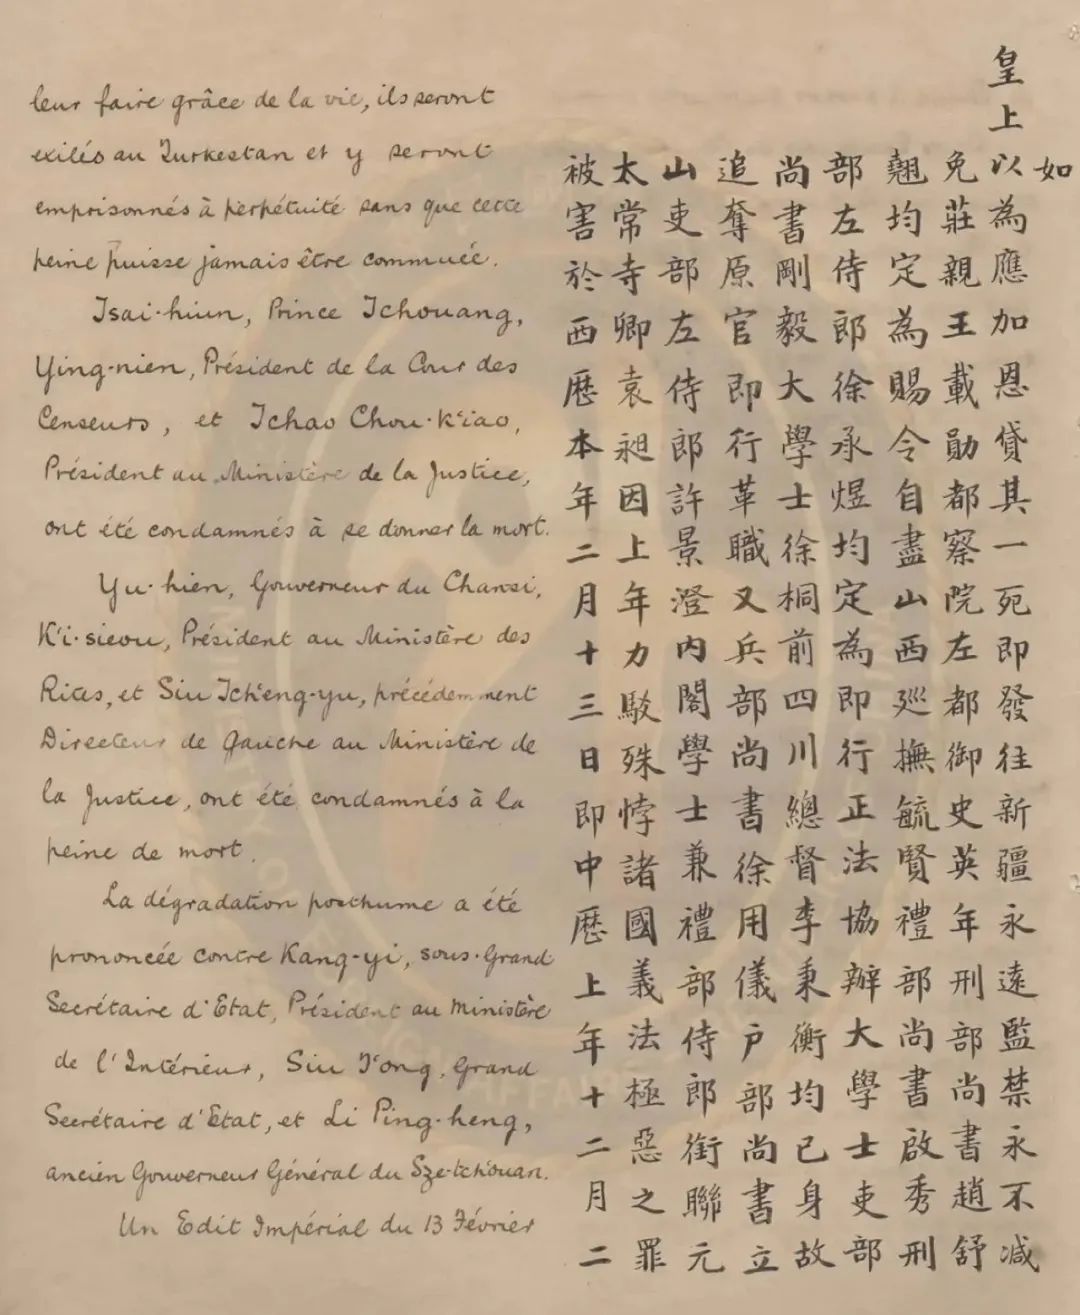 leur faire grâce de la vie, ils seront
exilés au Turkestan et y seront
emprisonnés à perpétuité sans que cette
peine puisse jamais être commuée.
Tsai-hiun, Prince Tchouang,
Ying-nien, Président de la Cour des
Censeurs, et Tchao Chou-k'iao,
Président au Ministère de la Justice,
ont été condamnés à se donner la mort.
Yu-hien, Gouverneur du Chansi,
K'i-sieou, Président au Ministère des
Rites, et Siu Tch'eng-yu, précédemment
Directeur de Gauche au Ministère de
la Justice, ont été condamnés à la
peine de mort.
La dégradation posthume a été
prononcée contre Kang-yi, sous-Grand
Secrétaire d'Etat, Président au Ministère
de l'Intérieur, Siu T'ong, Grand
Secrétaire d'Etat, et Li Ping-heng,
ancien Gouverneur Général du Sze-tch'ouan.
Un Edit Impérial du 13 Février
如
皇上以為應加恩貸其一死即發往新疆永遠監禁永不減
免莊親王載勛都察院左都御史英年刑部尚書趙舒
翹均定為賜令自盡山西巡撫毓賢禮部尚書啟秀刑
部左侍郎徐承煜均定為即行正法協辦大學士吏部
尚書剛毅大學士徐桐前四川總督李秉衡均已身故
追奪原官即行革職又兵部尚書徐用儀戶部尚書立
山吏部左侍郎許景澄內閣學士兼禮部侍郎銜聯元
太常寺卿袁昶因上年力駁殊悖諸國義法極惡之罪
被害於西歷本年二月十三日即中歷上年十二月二